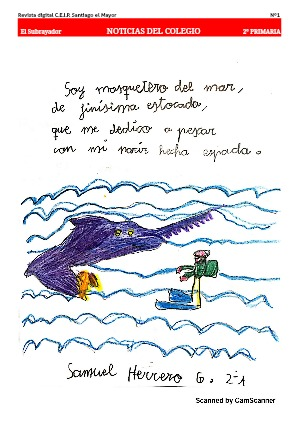 Revista digital C.E.I.P. Santiago el Mayor Nº1
El Subrayador NOTICIAS DEL COLEGIO 2º PRIMARIA
Soy mosquetero del mar,
de finísima estocada,
que me dedico a pesar
con mi nariz hecha espada.
Samuel Herrero G. 2º1
Scanned by CamScanner